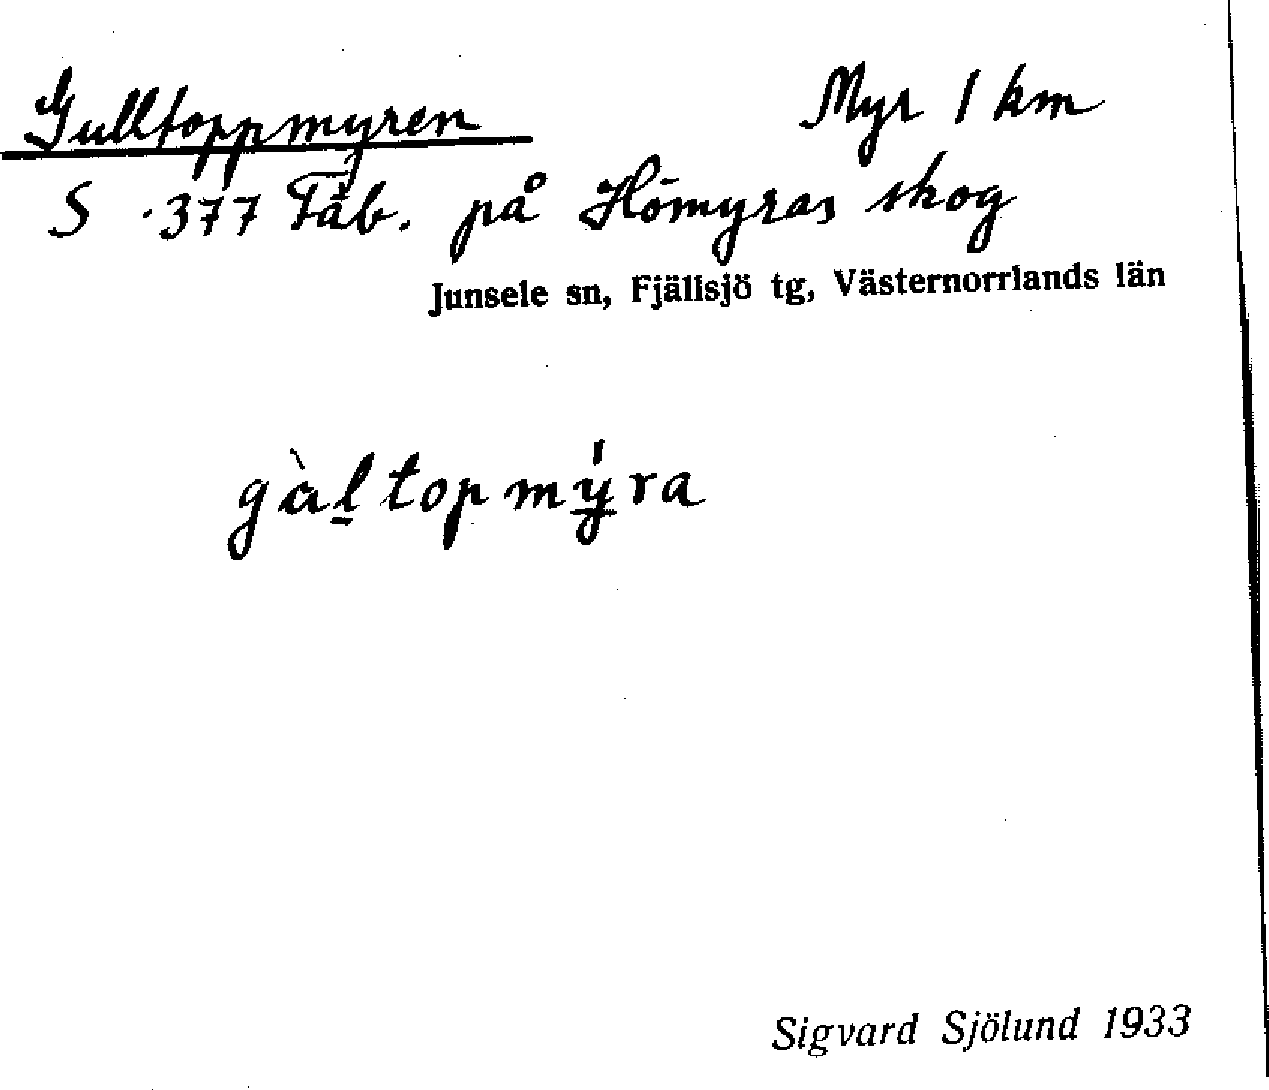 Gulltoppmyren Myr 1 km
S .377 Fäb. på Hömyras skog
Junsele sn, Fjällsjö tg, Västernorrlands län
gàl̠topmý̠ra
Sigvard Sjölund 1933